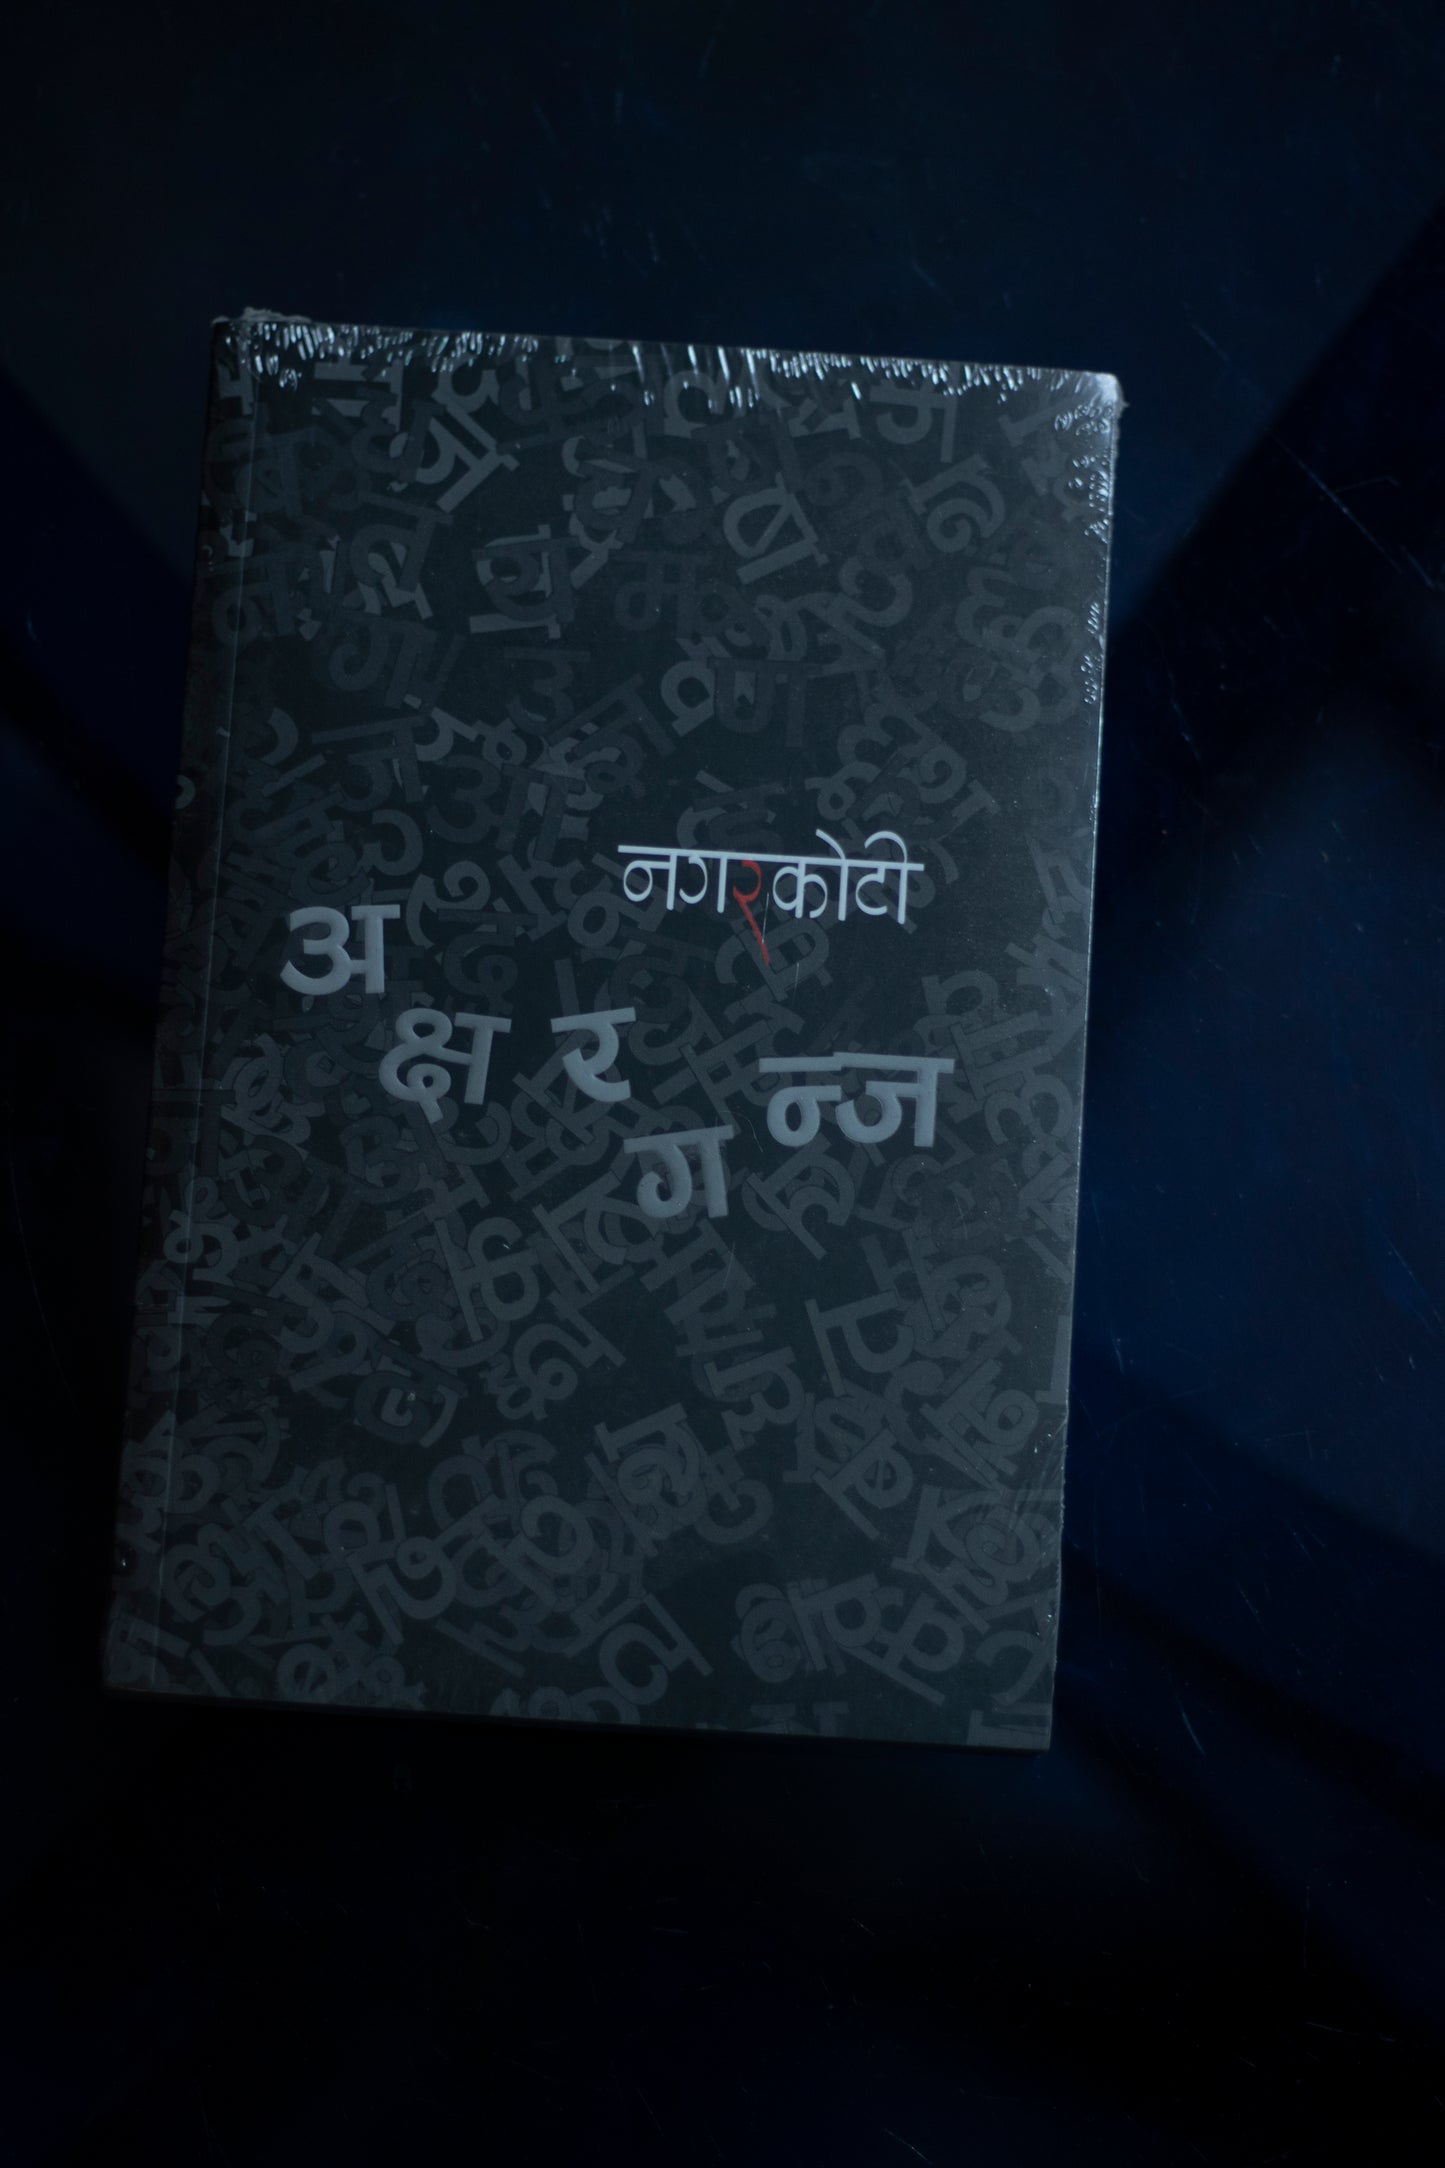 नगरकोटी
अक्षर गन्ज